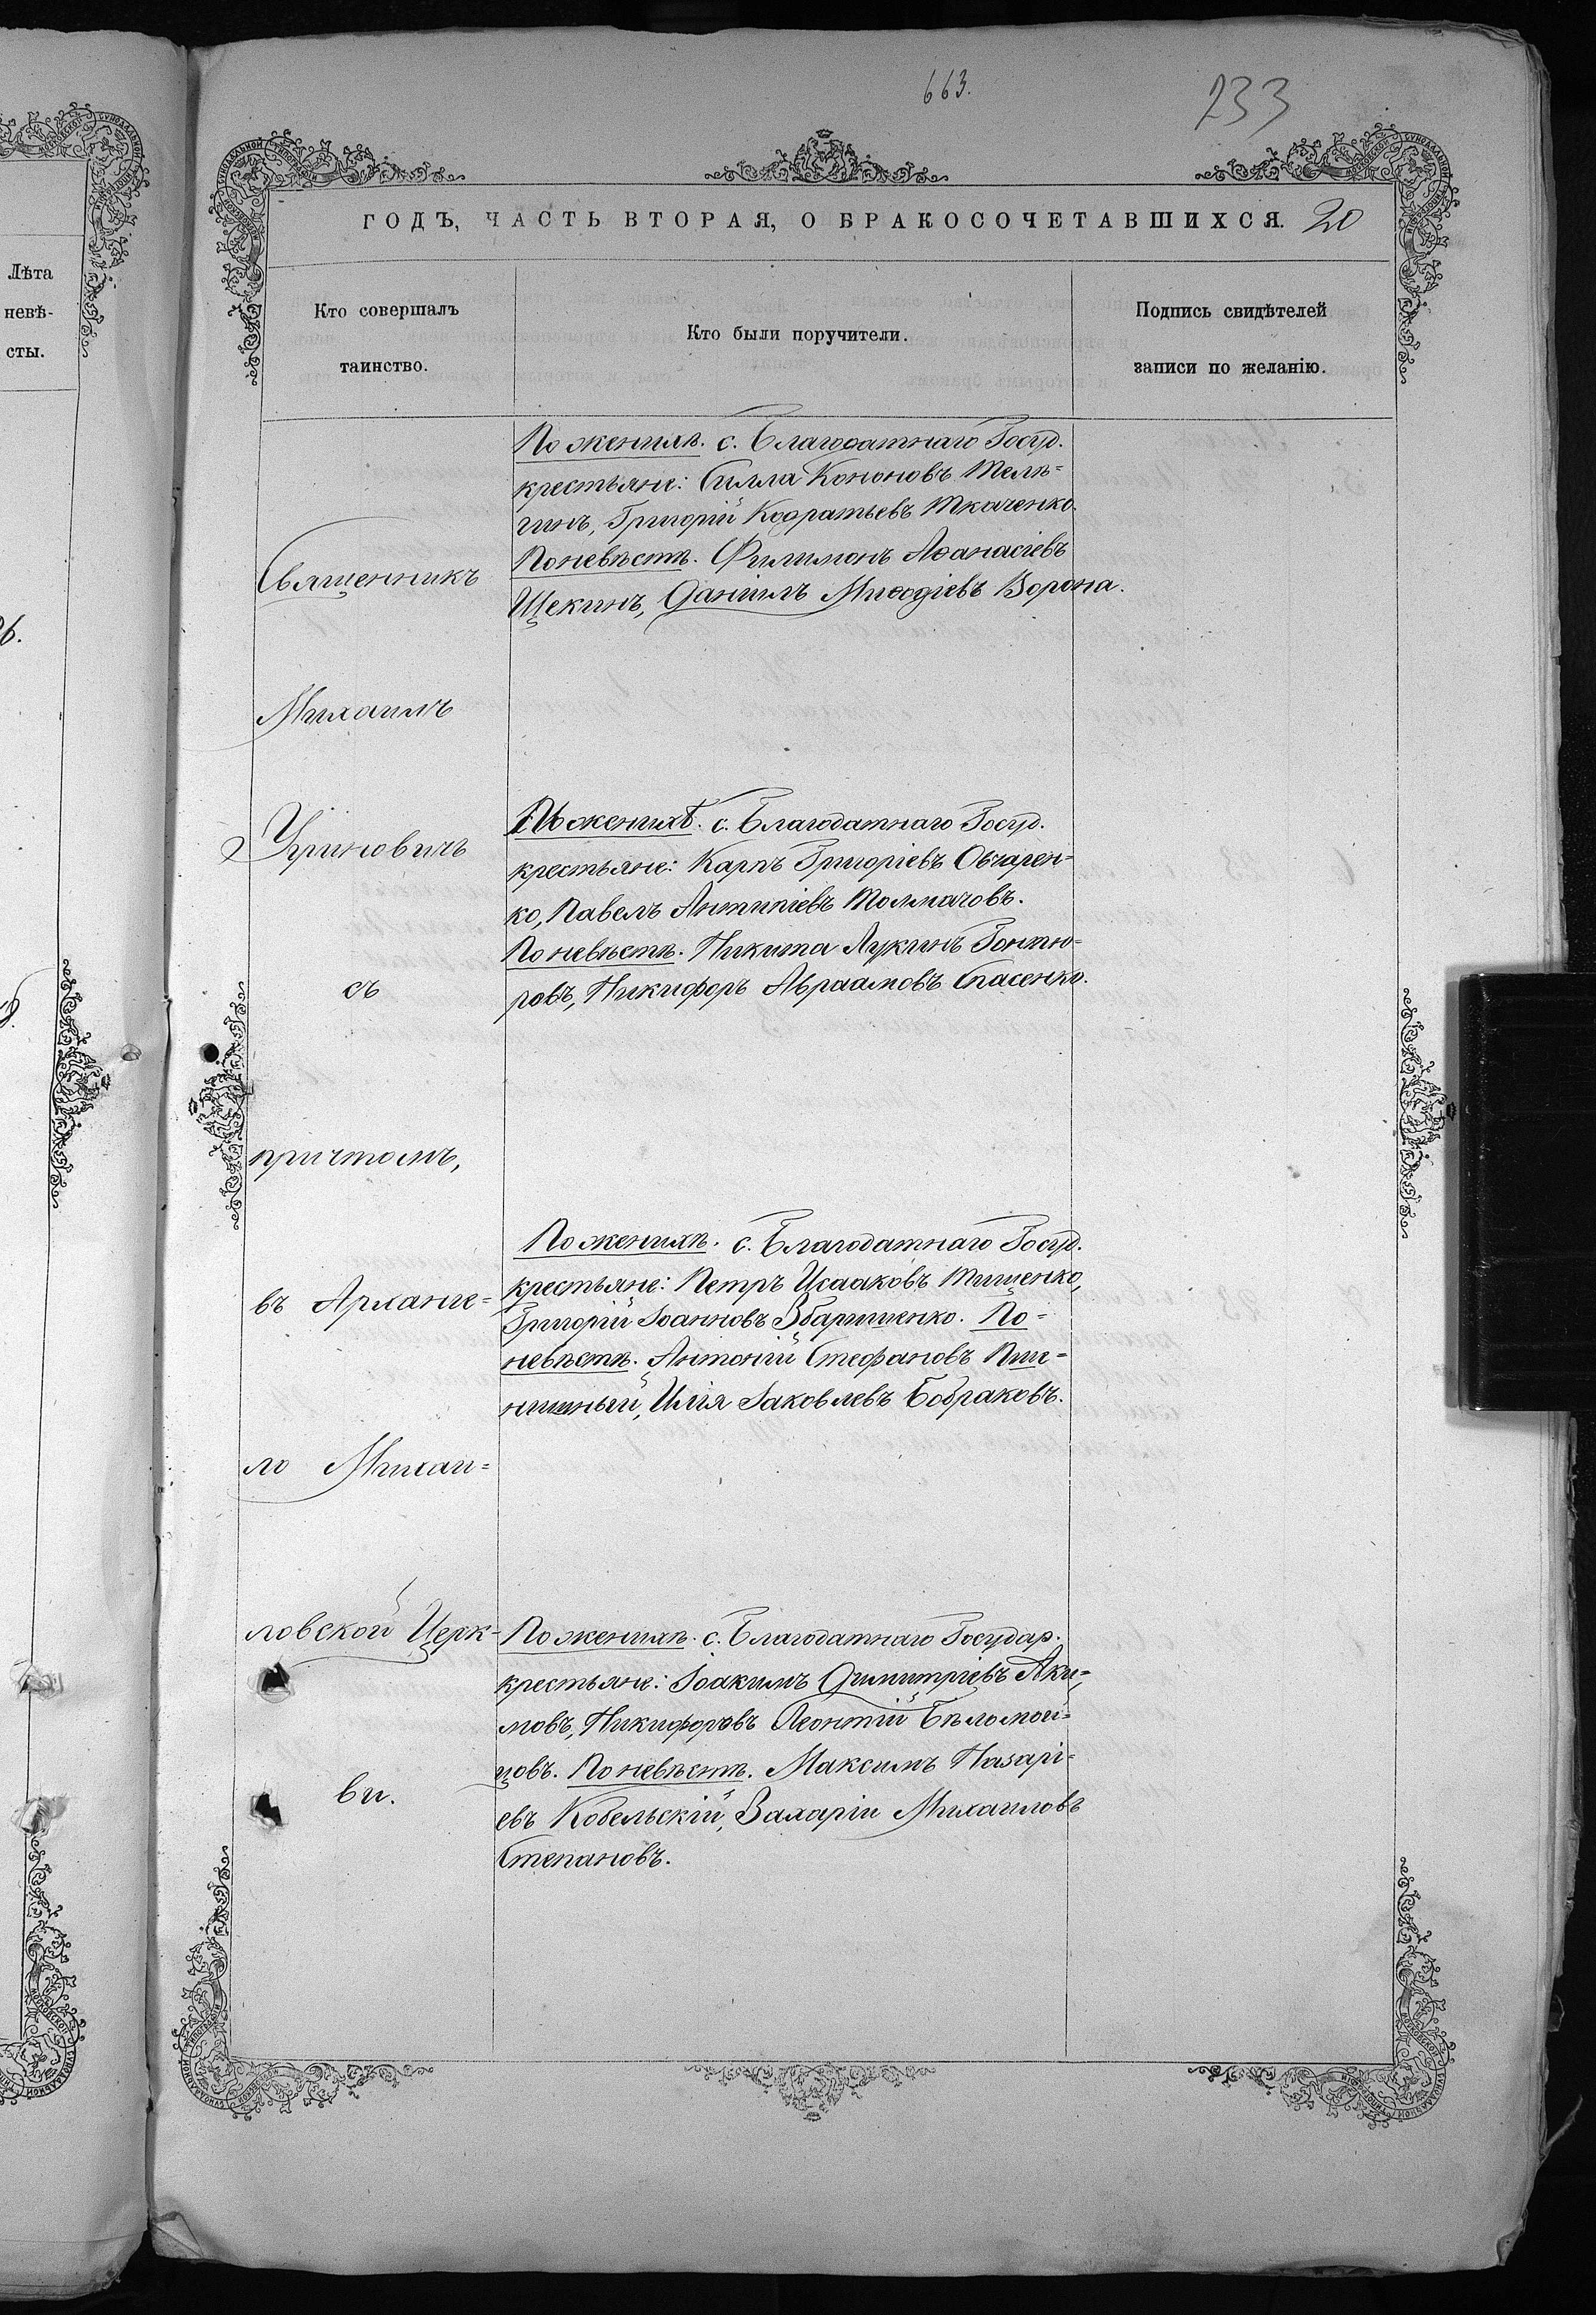 663.
233
ГОДЪ, ЧАСТЬ ВТОРАЯ, О БРАКОСОЧЕТАВШИХСЯ. 20
Лѣта
невѣ-
сты.
Кто совершалъ
таинство.
Кто были поручители.
Подпись свидѣтелей
записи по желанію.
Священникъ
Михаилъ
Угриновичъ
съ
причтомъ,
въ Арханге=
ло Михаи=
ловской Церк-
ви.
По женихѣ. с. Благодатнаго Госуд.
крестьяне: Силла Кононовъ Мелѣ=
гинъ, Григорій Кодратьевъ Ткаченко.
По невѣстѣ. Филимонъ Аѳанасіевъ
Щекинъ, Даніилъ Миѳодіевъ Ворона.
По женихѣ. с. Благодатнаго Госуд.
крестьяне: Карпъ Григоріевъ Овчарен=
ко, Павелъ Антипіевъ Толмачовъ.
По невѣстѣ. Никита Лукинъ Гонтю=
ровъ, Никифоръ Авраамовъ Спасенко.
По женихѣ. с. Благодатнаго Госуд.
крестьяне: Петръ Исааковъ Тищенко,
Григорій Іоанновъ Збарищенко. По=
невѣстѣ. Антоній Стефановъ Пше=
ничный, Илія Іаковлевъ Бобраковъ.
По женихѣ. с. Благодатнаго Государ.
крестьяне: Іоакимъ Димитріевъ Аки=
мовъ, Никифоровъ Леонтій Бѣломои=
цовъ. По невѣстѣ. Максимъ Назарі=
евъ Кобельскій, Захарій Михаиловъ
Степановъ.